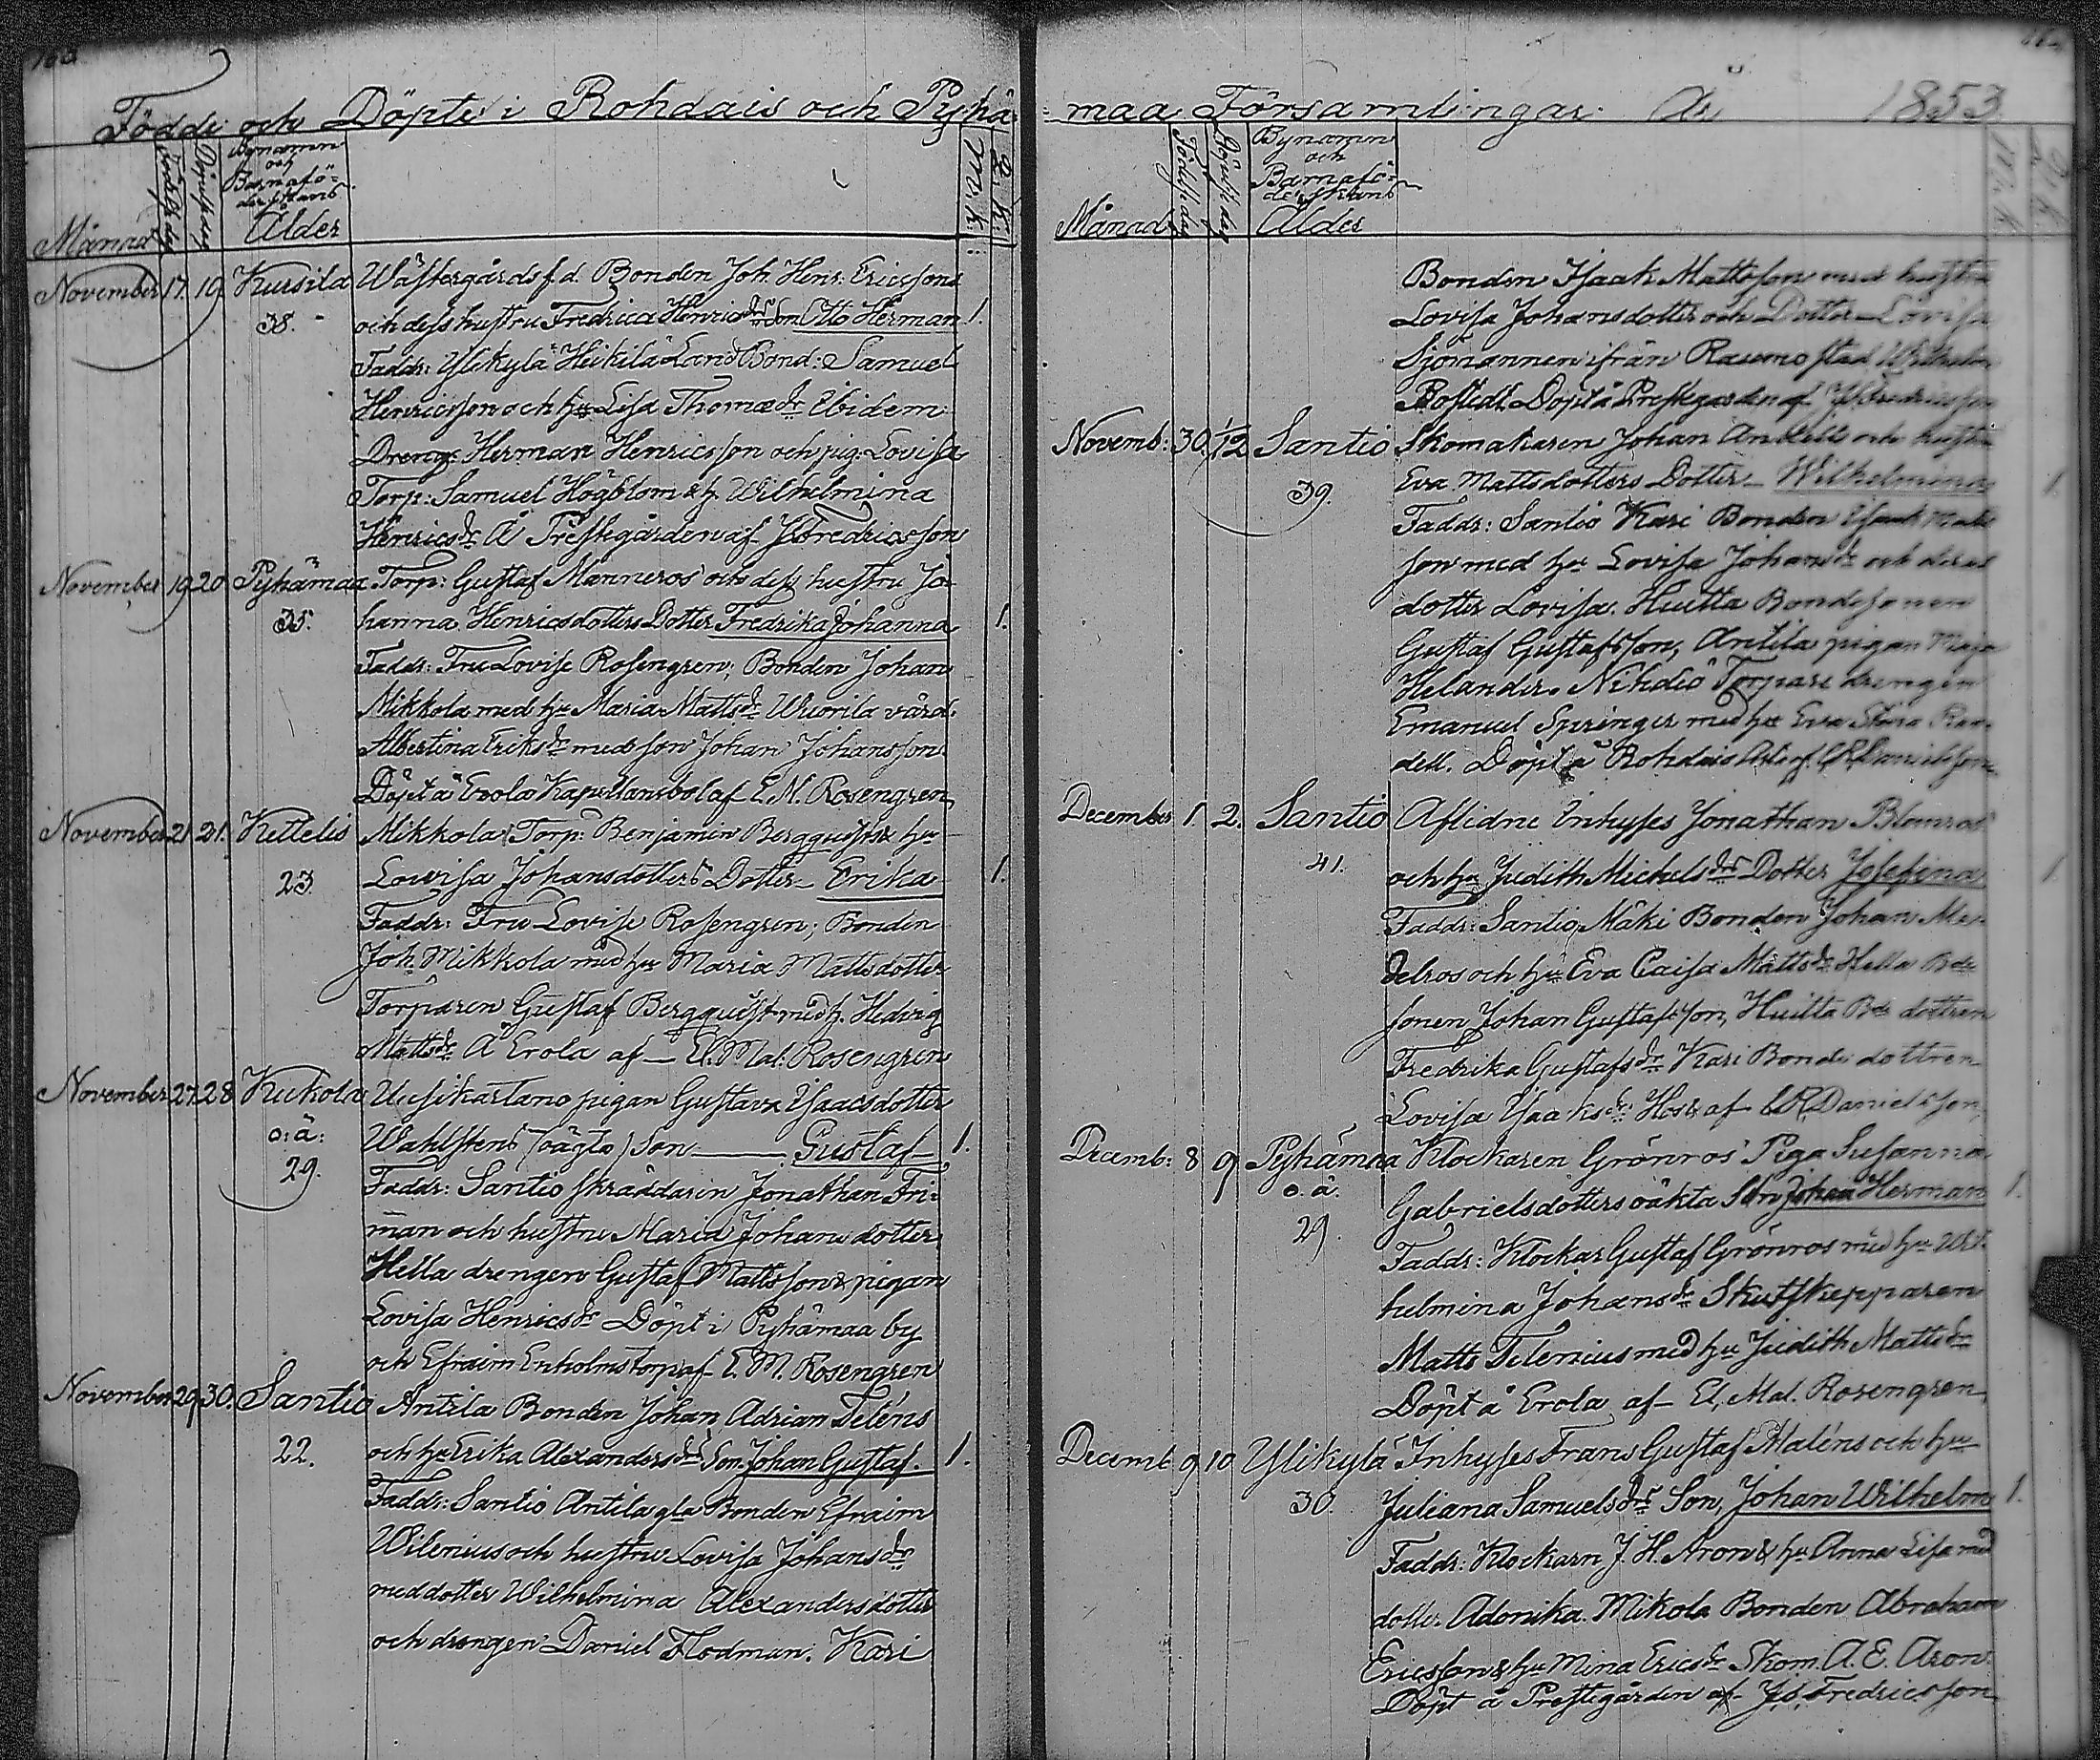 Födde och Döpte i Rohdais och Pyhä-
Månad
Födelsedag
Döpelsedag
Bynamn
och
Barnafö-
derskans
Ålder
M.k.
Q.k.
November 17. 19. Kursila Wästergårds f.d. Bonden Joh. Henr: Ericssons
38. och dess hustru Fredrica Henricsdrs Son Otto Herman 1.
Faddr: Ylikylä Heikilä Land Bond: Samuel
Henricsson och hu Lisa Thomædr Ibidem
Dreng: Herman Henricsson och pig. Lovisa
Torp: Samuel Högblom & h. Wilhelmina
Henricsdr Å Prestegården af J. Fredricsson
November 19 20 Pyhämaa Torp: Gustaf Manneros och dess hustru Jo-
35. hanna Henricsdotters Dotter Fredrika Johanna 1.
Faddr: Fru Lovise Rosengren; Bonden Johan
Mikkola med hu Maria Mattsdr Wuorila värd.
Albertina Eriksdr med son Johan Johansson
Döpt å Erola Kapellansbol af E. M. Rosengren
November 21 21. Kettelis Mikkola Torp: Benjamin Bergqvists & hu
23. Lowisa Johansdotters Dotter Erika 1.
Faddr: Fru Lovise Rosengren; Bonden
Joh. Mikkola med hu Maria Mattsdotter
Torparen Gustaf Bergquist med h. Hedvig
Mattsdr Å Erola af El. Mal. Rosengren
November 27. 28 Kukola Uusikartano pigan Gustava Isaacsdotter
o: ä: Wahlstens (oägta) Son Gustaf 1.
29. Faddr: Santio skräddaren Jonathan Fri-
man och hustru Maria Johansdotter
Hella drengen Gustaf Mattsson & pigan
Lovisa Henricsdr Döpt i Pyhämaa by
och Efraim Enholms torp af E. M. Rosengren
November 29 30. Santio Antila Bonden Johan Adrian Teléns
22. och hu Erika Alexandersdrs Son Johan Gustaf. 1.
Faddr: Santio Antila gla Bonden Efraim
Wilenius och hustru Lovisa Johansdr
med dotter Wilhelmina Alexandersdotter
och drengen Daniel Flodman. Kari
maa Församlingar År 1853
Månad
Födelsedag
Döpelsedag
Bynamn
och
Barnafö-
derskans
Ålder
M.k.
Q.k.
Bonden Isaak Mattsson med hustru
Lovisa Johansdotter och Dotter Lovisa
Sjömannen ifrån Raumo stad Wilhelm
Döpt å Prestegården af J. Fredricsson
Novemb: 30. 1/12 Santio Skomakaren Johan Antells och hustru
39. Eva Mattsdotters Dotter Wilhelmina 1.
Faddr: Santio Kari Bonden Isaak Matts
son med hu Lovisa Johansdr och deras
dotter Lovisa. Huitta Bondesonen
Gustaf Gustafsson, Antila pigan Maja
Helander. Nihdiö Torpare drengen
Emanuel Springer med hu Eva Stina Ran-
dell. Döpt å Rohdais af C R Danielsson
December 1. 2. Santio Aflidne Inhyses Jonathan Blomros
41. och hu Judith Michelsdrs Dotter Josefina 1
Faddr: Santio Mäki Bonden Johan Me-
delros och hu Eva Caisa Mattsdr Hella Bde
sonen Johan Gustafsson, Huitta Bde dottren
Fredrika Gustafsdr Kari Bonde dottren
Lovisa Isaksdr af C R Danielsson
Decemb: 8 9 Pyhämaa Klockaren Grönros Piga Susanna
o. ä. Gabrielsdotters oäkta Son Johan Herman 1.
29. Faddr: Klockar Gustaf Grönros med hu Wil-
helmina Johansdr Skutskepparen
Matts Telenius med hu Judith Mattsdr
Döpt å Erola af El. Mal. Rosengren
Decemb 9 10 Ylikylä Inhyses Frans Gustaf Maléns och hu
30. Juliana Samuelsdrs Son, Johan Wilhelm 1.
Faddr: Klockarn J. H. Aron & hu Anna Lisa med
dotter Adonika. Mikola Bonden Abraham
Ericsson & hu Mina Ericsdr Skom. A. E. Aron.
Döpt å Prestegården af J. Fredricsson